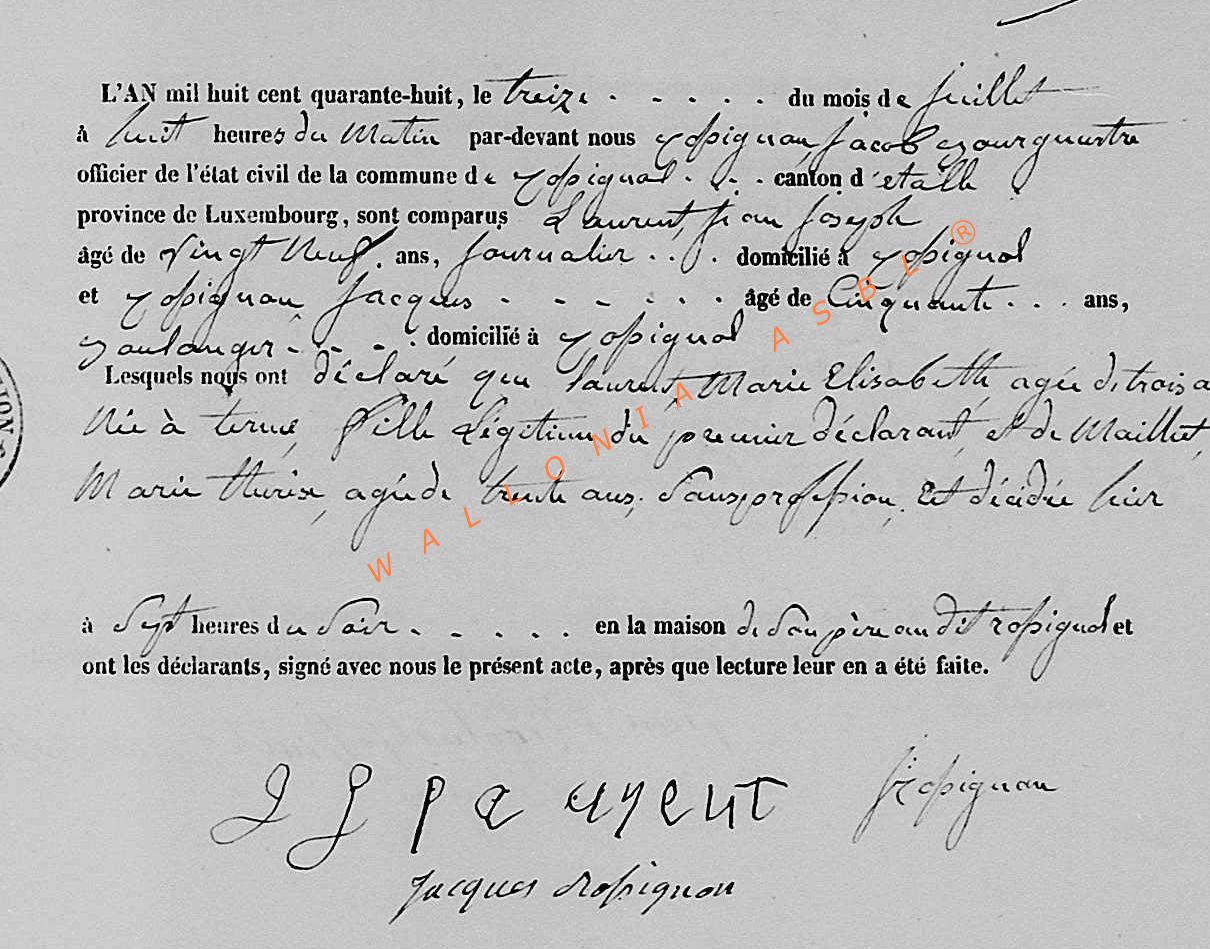 L'AN mil huit cent quarante-huit, le treize - - - - - du mois de juillet
à huit heures du Matin par-devant nous rossignon, Jacob bourguestre
officier de l'état civil de la commune de rossignol - - - canton d'etalle
province de Luxembourg, sont comparus Laurent, jean joseph
âgé de vingt neuf. ans, journalier . . . . domicilié à rossignol
et rossignon jacques - - - - - . . . âgé de Cinquante . . . ans,
boulanger - - - - . domicilié à rossignol
Lesquels nous ont déclaré que laurent, Marie Elisabeth, agée de trois a
Née à terme, fille Légitime du premier déclarant, et de Maillet,
Marie thérèse, agée de trente ans, sans profession, Est décédée hier
à Sept heures du Soir - - - - - - en la maison de Son père au dit rossignol et
ont les déclarants, signé avec nous le présent acte, après que lecture leur en a été faite.
J rossignon
Jacques rossignon
WALLONIA ASBL ®